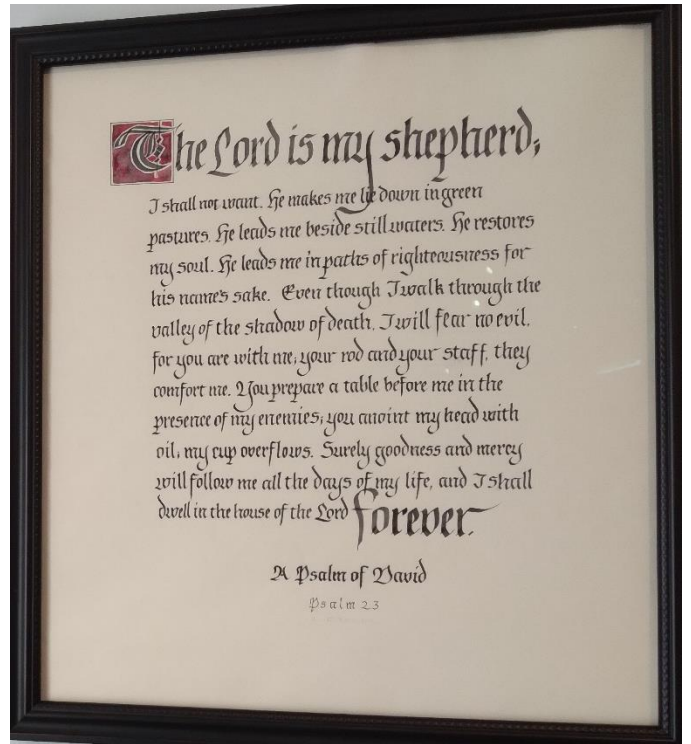 The Lord is my shepherd;
I shall not want. He makes me lie down in green
pastures. He leads me beside still waters. He restores
my soul. He leads me in paths of righteousness for
his name's sake. Even though I walk through the
valley of the shadow of death, I will fear no evil,
for you are with me; your rod and your staff, they
comfort me. You prepare a table before me in the
presence of my enemies; you anoint my head with
oil, my cup overflows. Surely goodness and mercy
will follow me all the days of my life, and I shall
dwell in the house of the Lord forever.
A Psalm of David
Psalm 23